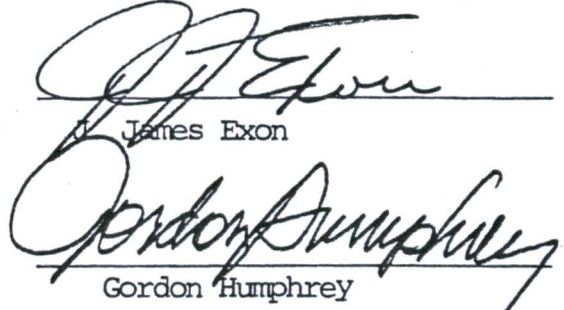 J J Exon
J. James Exon
Gordon Humphrey
Gordon Humphrey